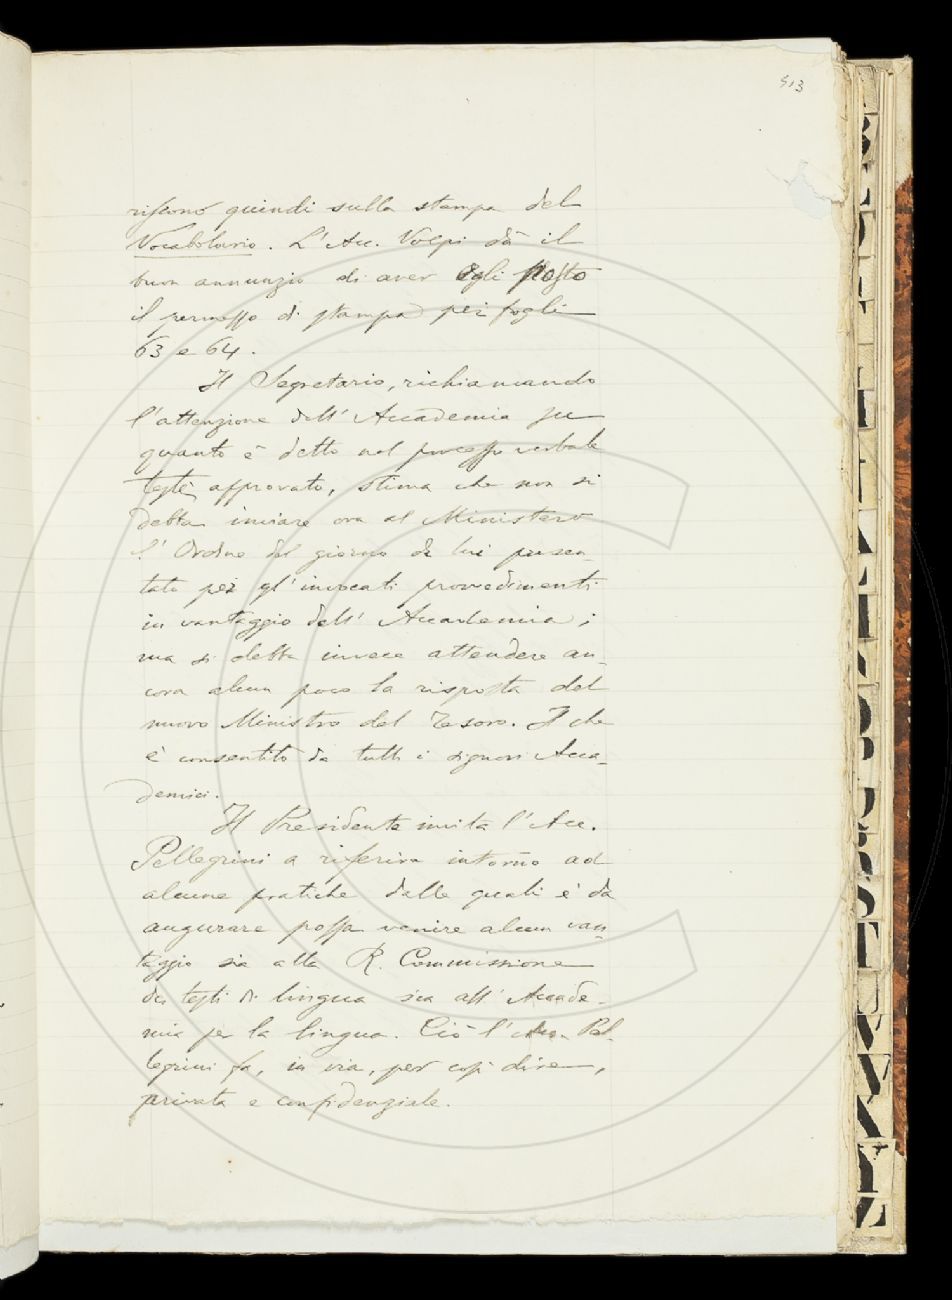 513
riscono quindi sulla stampa del
Vocabolario. L'Acc. Volpi dà il
buon annunzio di aver egli posto
il permesso di stampa pei fogli
63 e 64.
Il Segretario, richiamando
l'attenzione dell'Accademia su
quanto è detto nel processo verbale
testè approvato, stima che non si
debba inviare ora al Ministero
l'Ordine del giorno da lui presen-
tato per gl'invocati provvedimenti
in vantaggio dell'Accademia;
ma si debba invece attendere an-
cora alcun poco la risposta del
nuovo Ministro del Tesoro. Il che
è consentito da tutti i signori Acca-
demici.
Il Presidente invita l'Acc.
Pellegrini a riferire intorno ad
alcune pratiche dalle quali è da
augurare possa venire alcun van-
taggio sia alla R. Commissione
dei testi di lingua sia all'Accade-
mia per la lingua. Ciò l'Acc. Pel-
legrini fa, in via, per così dire,
privata e confidenziale.